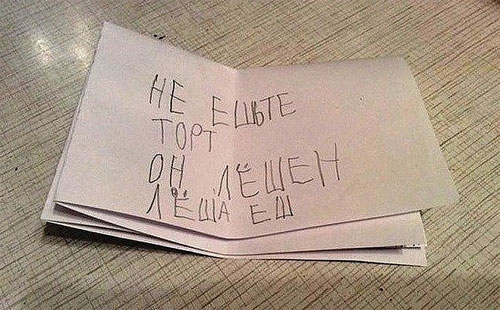 НЕ ЕШЬТЕ
ТОРТ
ОН ЛЁШЕН
ЛЁША ЕШ